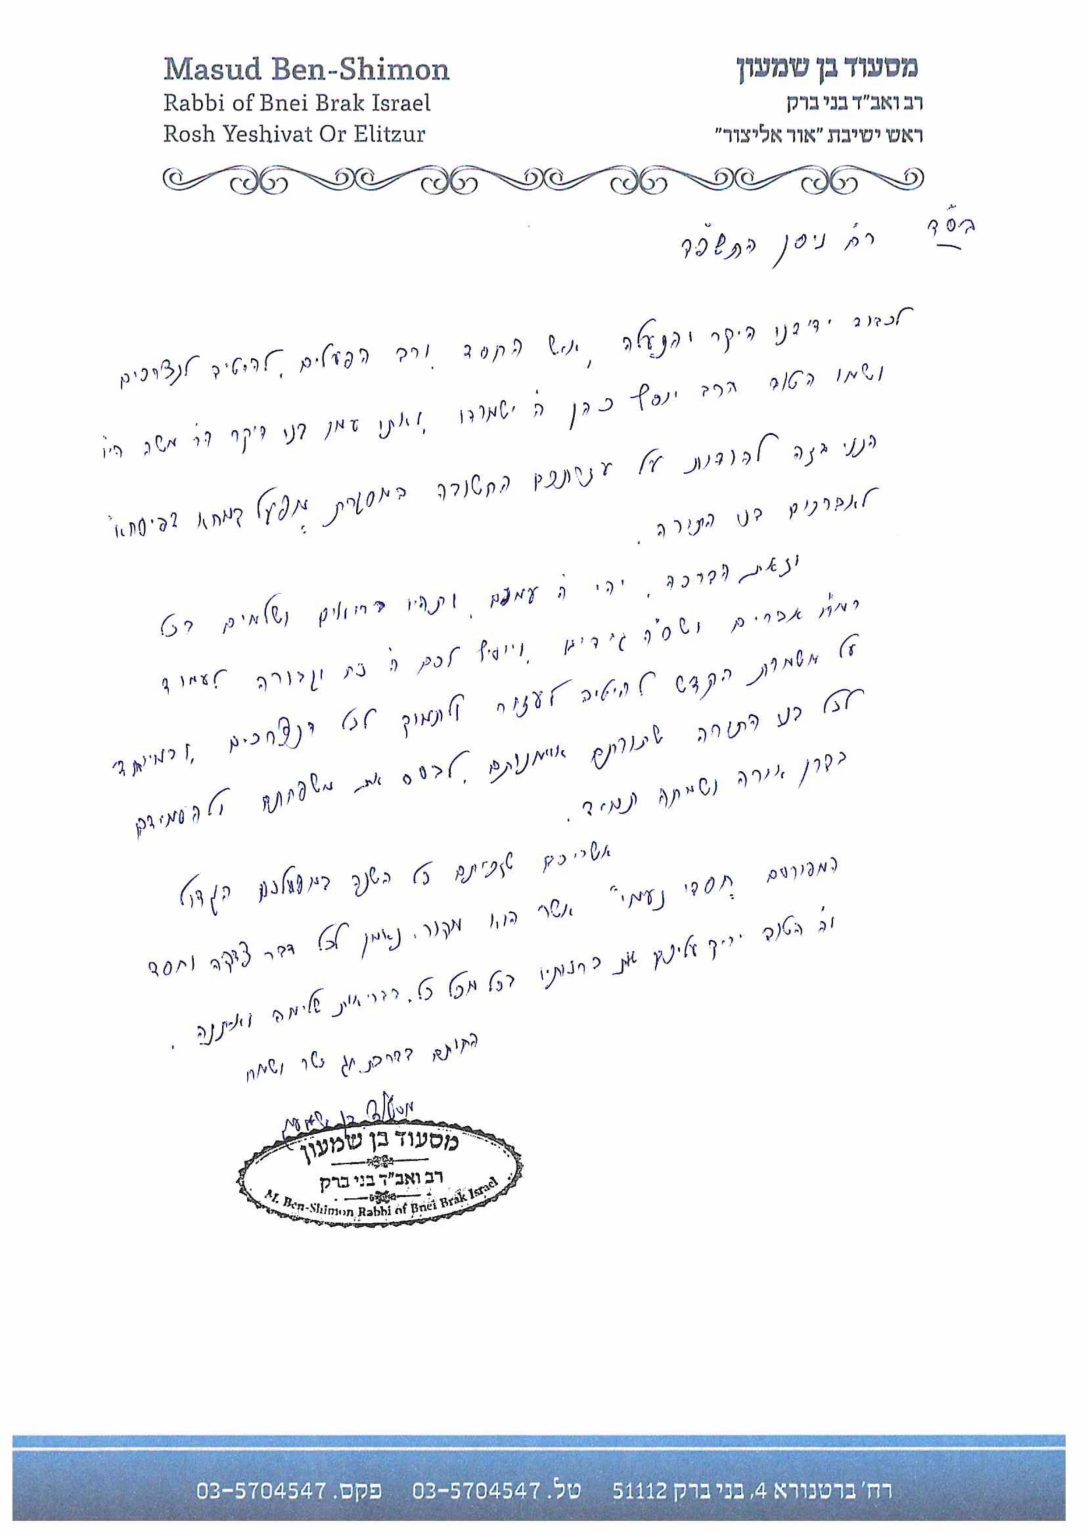 Masud Ben-Shimon
Rabbi of Bnei Brak Israel
Rosh Yeshivat Or Elitzur
מסעוד בן שמעון
רב ואב"ד בני ברק
ראש ישיבת "אור אליצור"
בס"ד
ר"ח ניסן התשפ"ד
לכבוד ידידנו היקר והנעלה, איש החסד ורב הפעלים, להטיב לנצרכים
ושמו הטוב הרב יוסף כהן ה' ישמרהו, ואתו עמו בנו היקר הר' משה הי"ו
הנני בזה להודות על עזרתכם החשובה במסגרת מפעל קמחא דפיסחא
לאברכים בני התורה.
וזאת הברכה, יהי ה' עמכם, ותהיו בריאים ושלמים בכל
רמ"ח אברים ושס"ה גידים, ויוסיף לכם ה' כח וגבורה לעמוד
על משמרת הקדש להיטיב לעזור ולתמוך לכל הנצרכים, ובמיוחד
לכל בני התורה שתורתם אומנותם, לבסס את משפחתם ולהעמידם
בקרן אורה ושמחה תמיד.
אשריכם שזכיתם כל השנה במפעלכם הגדול
המפורסם "חסדי נעמי" אשר הוא מקור נאמן לכל דבר צדקה וחסד
וה' הטוב יריק עליכם את ברכותיו בכל מכל כל, בבריאות שלימה ואיתנה.
החותם בברכת חג כשר ושמח
מסעוד בן שמעון
מסעוד בן שמעון
רב ואב"ד בני ברק
M. Ben-Shimon Rabbi of Bnei Brak Israel
רח' ברטנורא 4, בני ברק 51112 טל. 03-5704547 פקס. 03-5704547